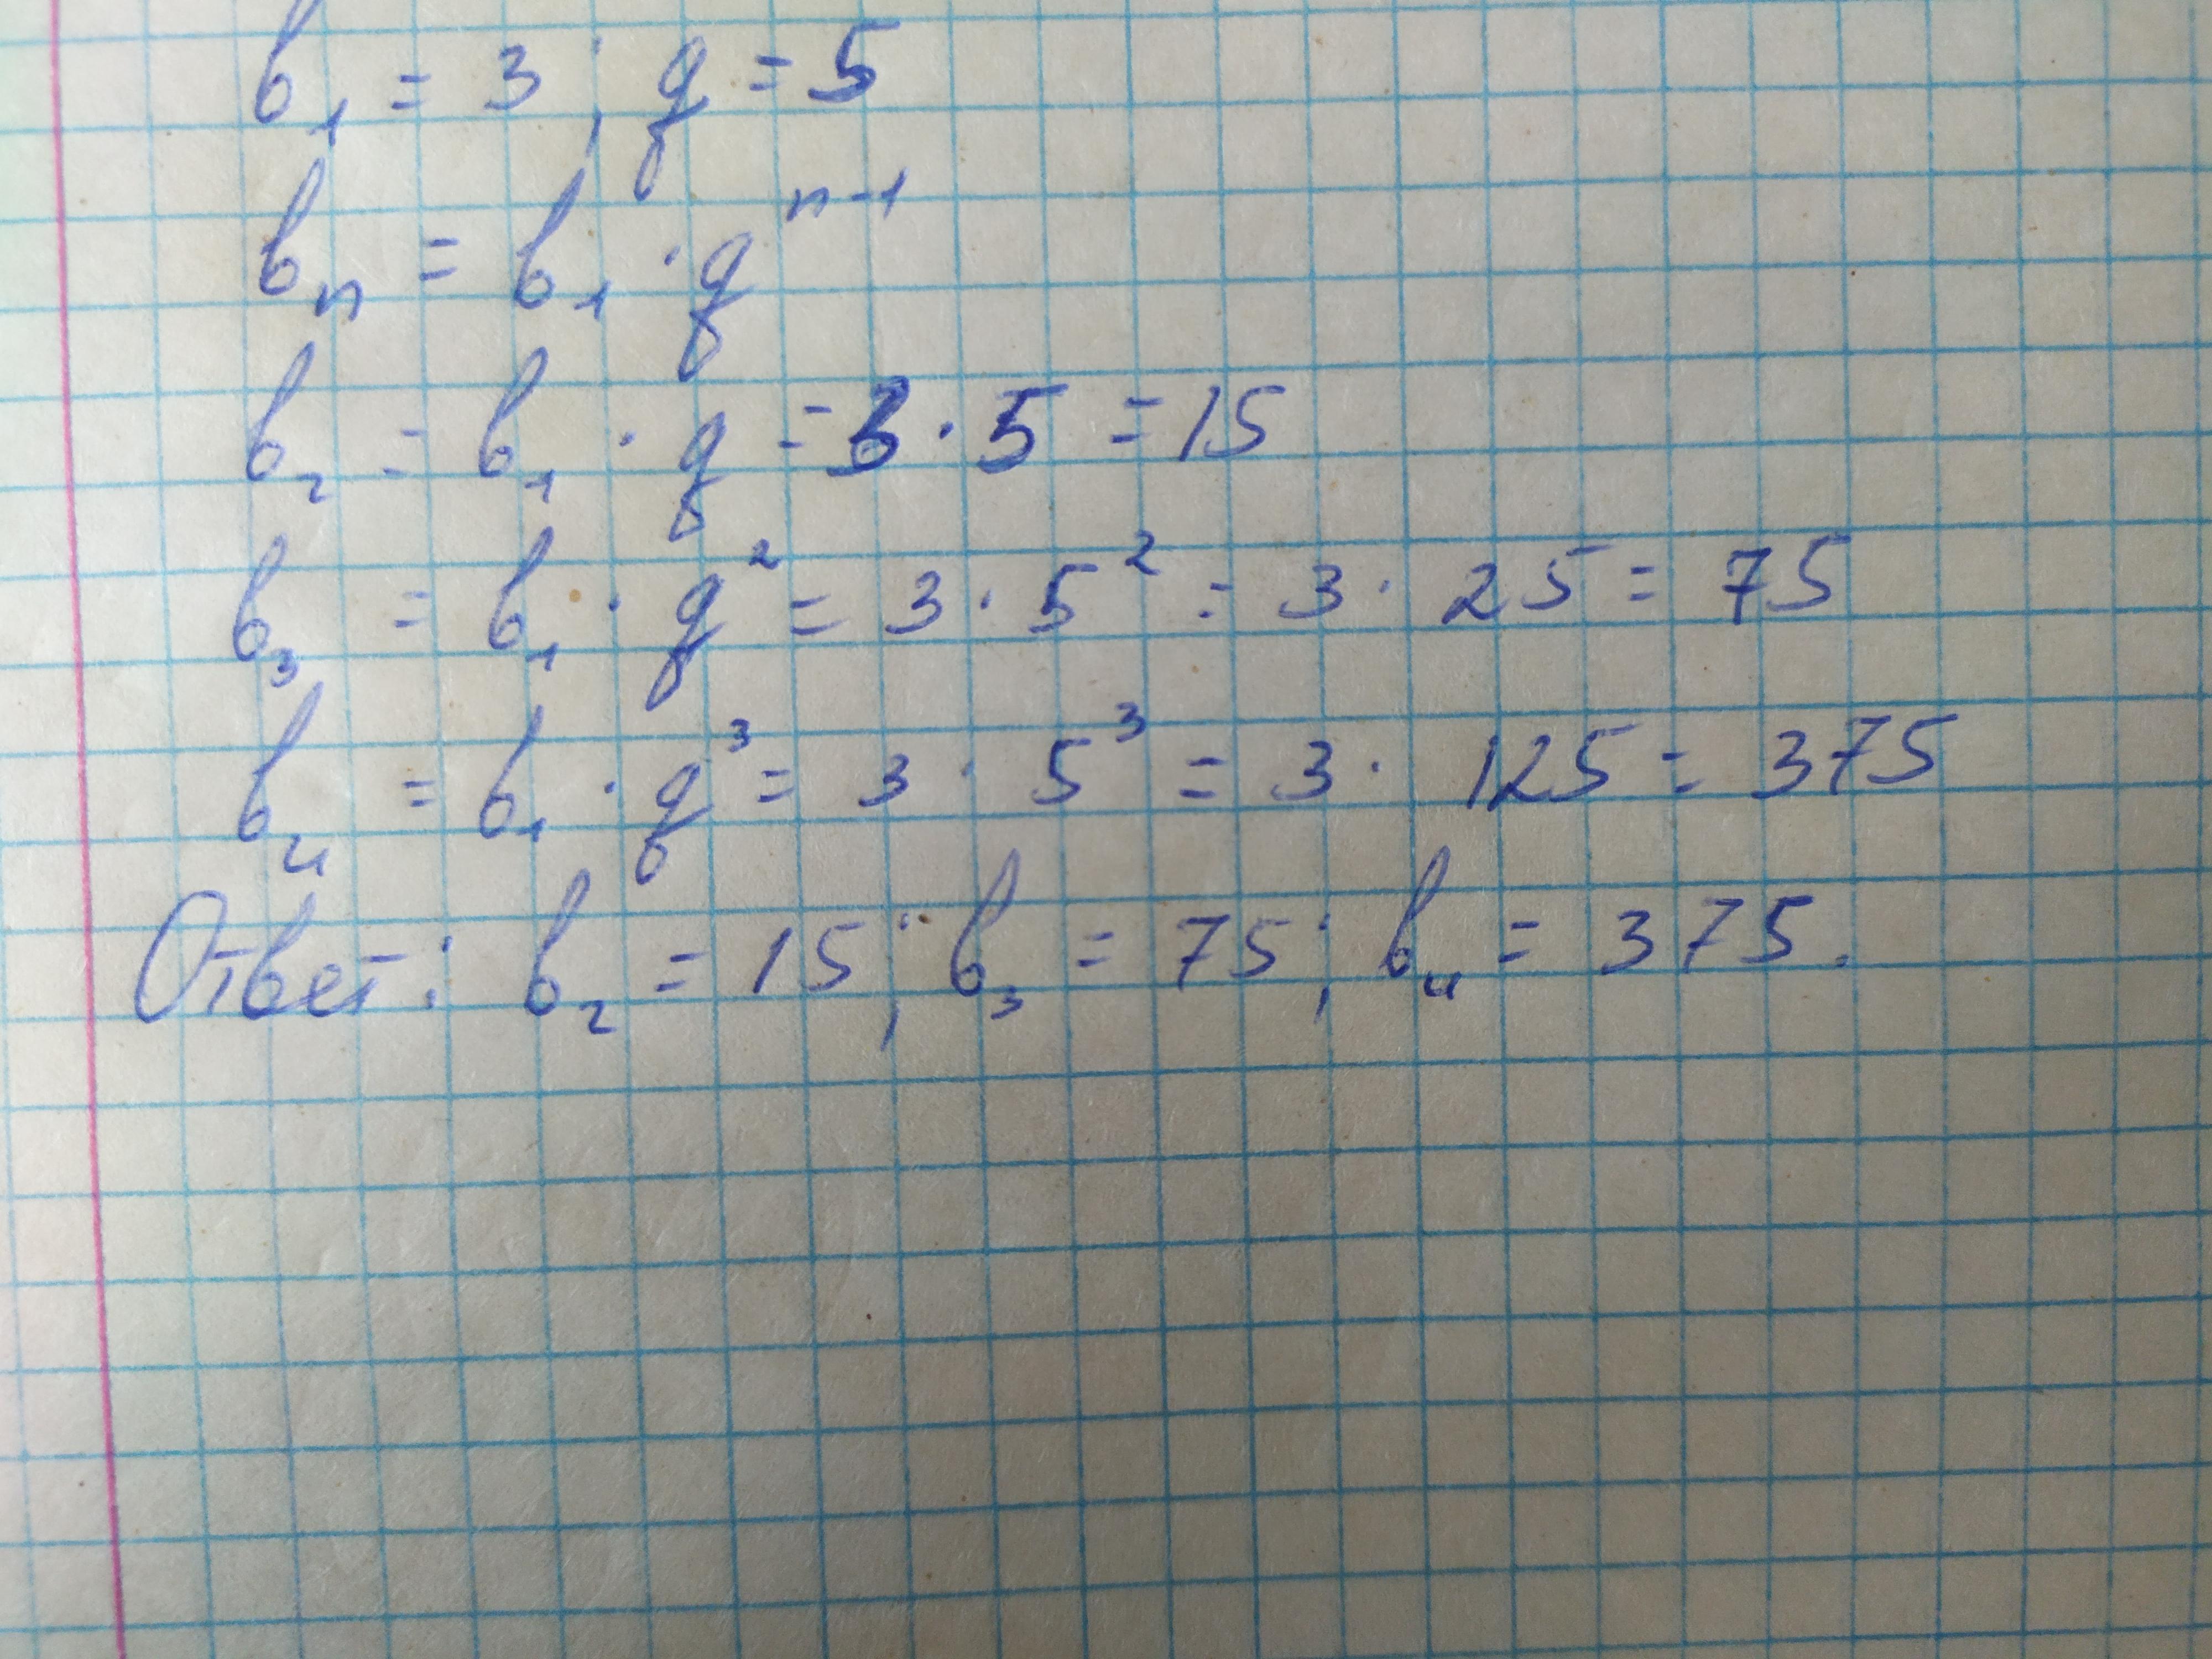 b₁ = 3 ; q = 5
bₙ = b₁ · qⁿ⁻¹
b₂ = b₁ · q = 3 · 5 = 15
b₃ = b₁ · q² = 3 · 5² = 3 · 25 = 75
b₄ = b₁ · q³ = 3 · 5³ = 3 · 125 = 375
Ответ: b₂ = 15 ; b₃ = 75 ; b₄ = 375.